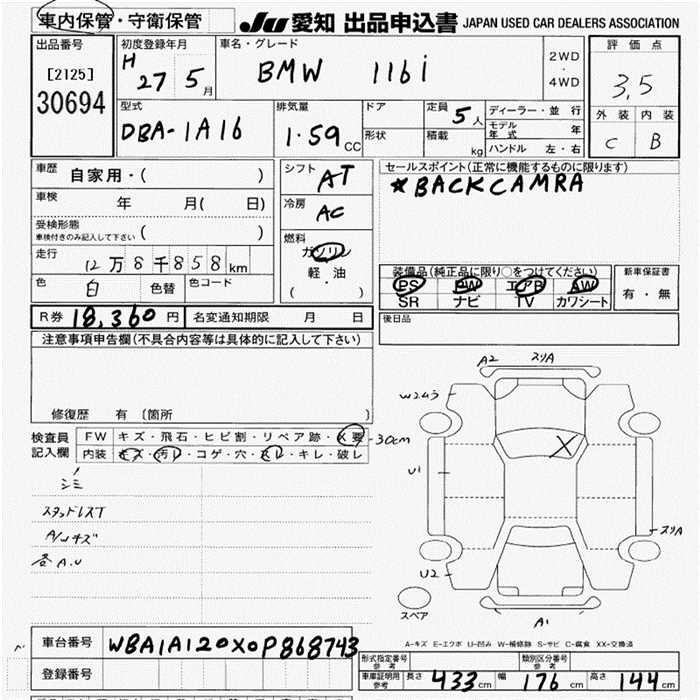 車内保管・守衛保管 JU 愛知 出品申込書 JAPAN USED CAR DEALERS ASSOCIATION
出品番号 初度登録年月 車名・グレード 2WD・4WD 評価点
[2125] 30694 H 27 5月 BMW 116i 3.5
型式 排気量 ドア 定員 5人 ディーラー・並行 外装 内装
DBA-1A16 1.59CC 形状 積載 kg モデル年式 年 C B
ハンドル 左・右
車歴 自家用・( ) シフト AT セールスポイント(正常に機能するものに限ります)
車検 年 月( 日) 冷房 AC *BACKCAMRA
受検形態 車検付きのみ記入して下さい ( ) 燃料 ガソリン
走行 12万8千858km 軽・油 装備品(純正品に限り○をつけてください) 新車保証書
色 白 色替 色コード ( ・ ) PS PW エアB AW 有・無
SR ナビ TV カワシート
R券 18,360円 名変通知期限 月 日 後日品
注意事項申告欄(不具合内容等は具体的に記入して下さい)
修復歴 有 〔箇所 〕
検査員記入欄 FW キズ・飛石・ヒビ割・リペア跡・X要 -30cm
内装 キズ・汚レ・コゲ・穴・スレ・キレ・破レ
シミ
スタッドレスT
A/Wキズ
各A.U
A2 スリA
U1
スリA
U2
スペア A1
A-キズ E-エクボ U-凹み W-補修跡 S-サビ C-腐食 XX-交換済
車台番号 WBA1A120X0P868743
登録番号
形式指定番号 参考 類別区分番号 参考
車庫証明用 参考 長さ 433cm 幅 176cm 高さ 144cm